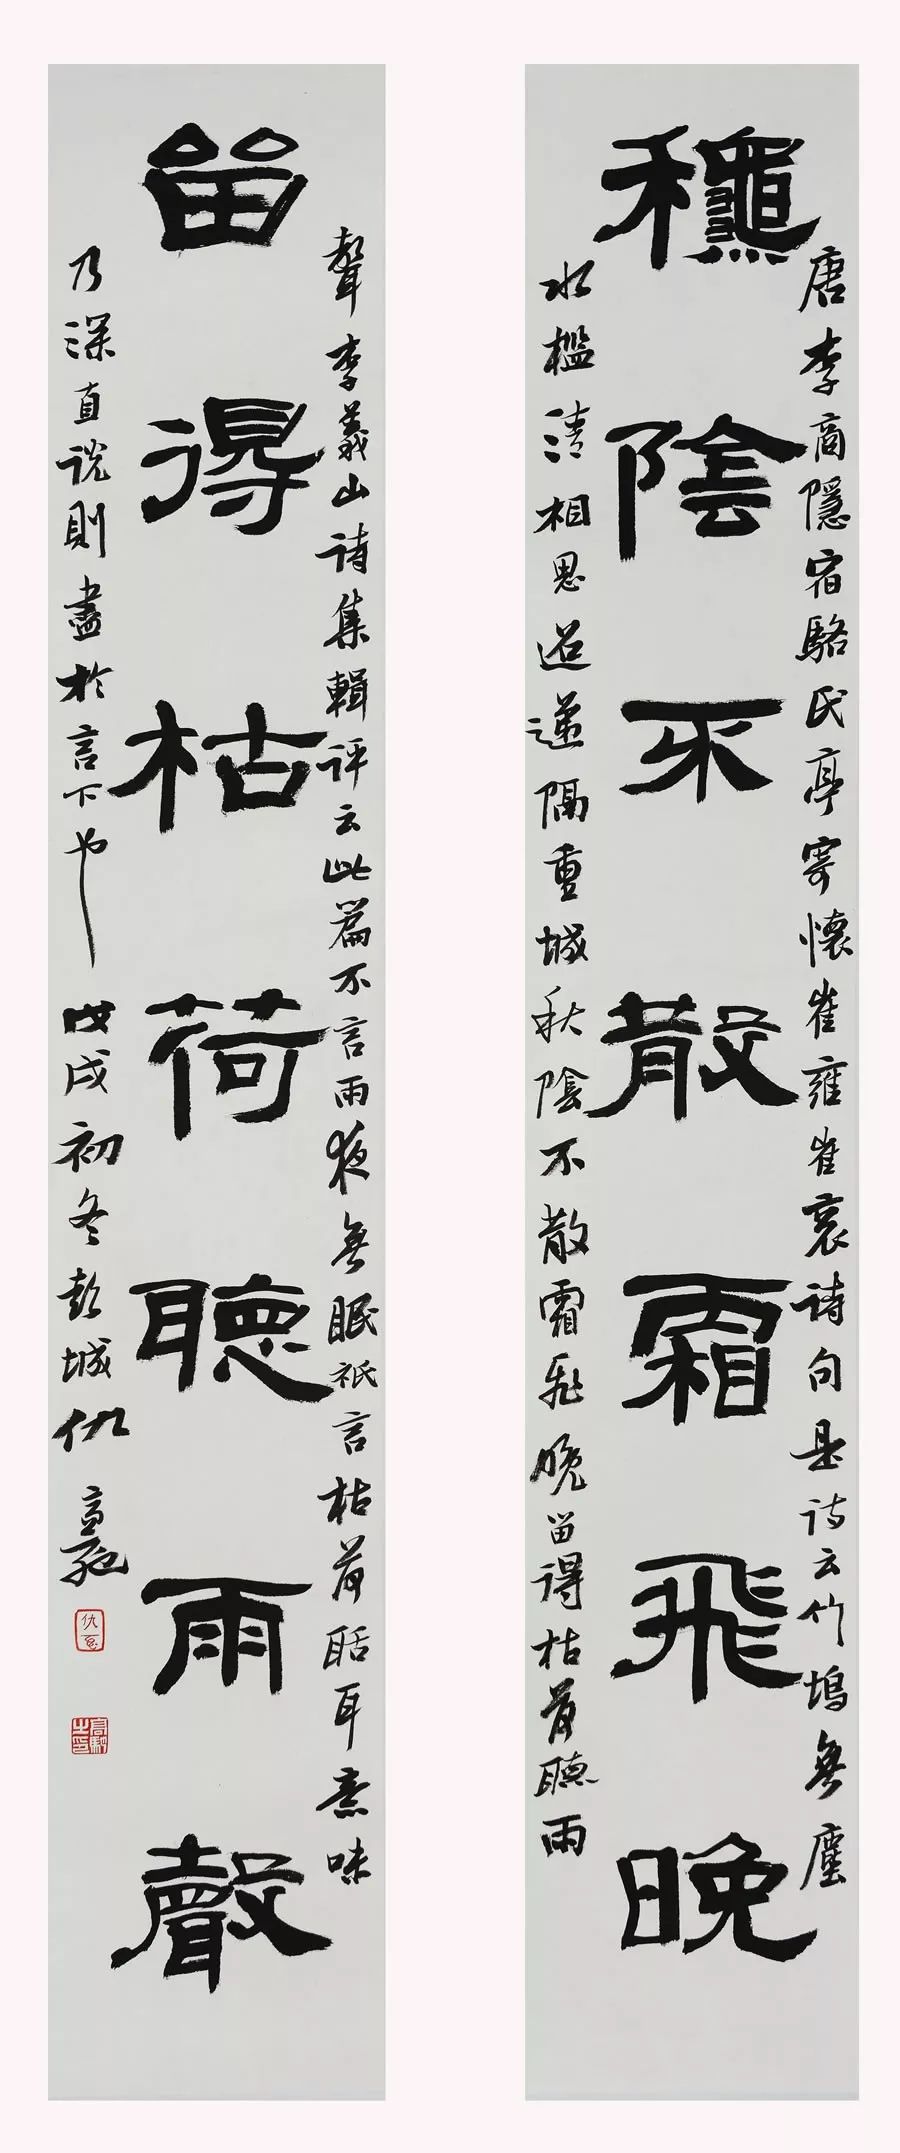 龝陰不散霜飛晚
唐李商隱宿駱氏亭寄懷崔雍崔袞詩句是詩云竹塢無塵
水檻清相思迢遞隔重城秋陰不散霜飛晚畱得枯荷聽雨
畱得枯荷聽雨聲
聲李義山詩集輯評云此篇不言雨夜無眠祇言枯荷聒耳意味
乃深直說則盡於言下也戊戌初冬彭城仇高馳
高馳之印